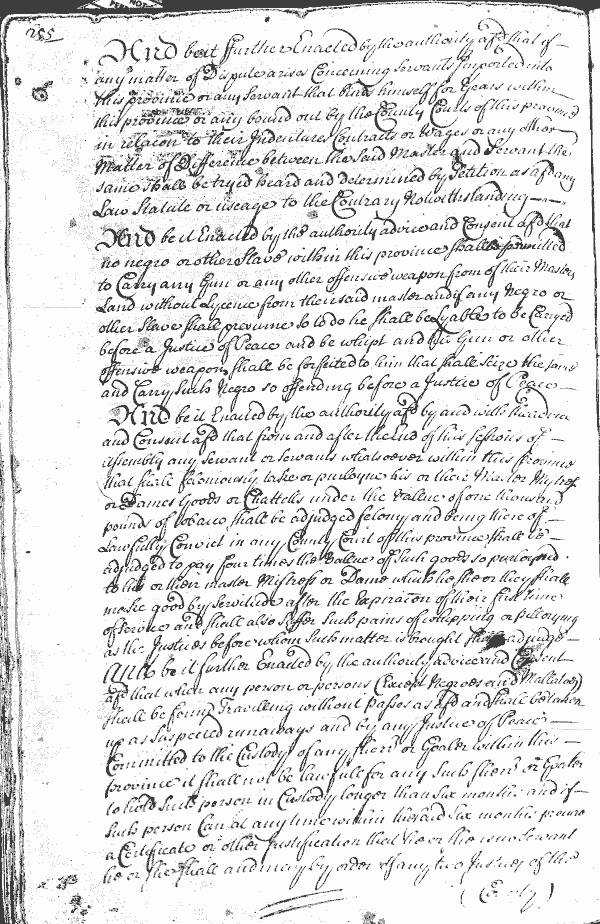 255
And be it further Enacted by the authority afd that if
any matter of Dispute arise Concerning Servants Imported into
this province or any Servant that binds himself for Years within
this province or any bound out by the County Courts of this province
in relacon to their Indentures Contracts or Wages or any other
Matter of Difference between the said Master and Servant the
same shall be tryed heard and determined by Petition as afd any
Law Statute or useage to the Contrary Notwithstanding
And be it Enacted by the authority advice and Consent afd that
no negro or other Slave within this province shall be permitted
to Carry any Gun or any other offensive weapon from of their Masters
Land without Lycence from their said master and if any Negro or
other Slave shall presume so to do he shall be Lyable to be Carryed
before a Justice of Peace and be whipt and his Gun or other
offensive weapon shall be forfeited to him that shall Seize the same
and Carry Such Negro so offending before a Justice of Peace
And be it Enacted by the authority afd by and with the advice
and Consent afd that from and after the end of this Session of
Assembly any servant or servants whatsoever within this province
that shall feloniously take or purloyne his or their Master Mistress
or Dames Goods or Chattells under the Vallue of one thousand
pounds of tobacco shall be adjudged felony and being there of
Lawfully Convict in any County Court of this province shall be
adjudged to pay four times the Vallue of Such goods so purloyned
to his or their master Mistress or Dame which he she or they shall
make good by Servitude after the Expiracon of their first time
of Service and shall also Suffer Such pains of whipping or Pilloryng
as the Justices before whom Such matter is brought shall adjudge
And be it further Enacted by the authority advice and Consent
afd that when any person or persons (Except Negroes and Mallatoes)
Shall be found Travelling without Passes as afd and shall be taken
up as Suspected runaways and by any Justice of Peace
Committed to the Custody of any Sherr or Goaler within this
province it shall not be lawfull for any Such Sherr or Goaler
to hold Such person in Custody longer than Six months and if
Such person Can at any time within the said Six months procure
a Certificate or other Justification that he or she is no Servant
he or she shall and may by order of any two Justices of the
(County)